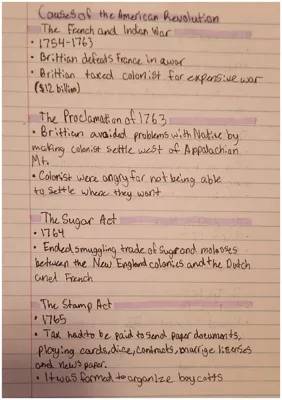 Causes of the American Revolution
The French and Indian War
• 1754-1763
• Brittian defeats France in a war
• Brittian taxed colonist for expensive war
($12 billion)
The Proclamation of 1763
• Brittian avoided problems with Native by
making colonist settle west of Appalachian
Mt.
• Colonist were angry for not being able
to settle where they want
The Sugar Act
• 1764
• Ended smuggling trade of Sugar and molasses
between the New England colonies and the Dutch
and French
The Stamp Act
• 1765
• Tax had to be paid to send paper documents,
playing cards, dice, contracts, marrige licenses
and newspaper.
• It was formed to organize boycotts